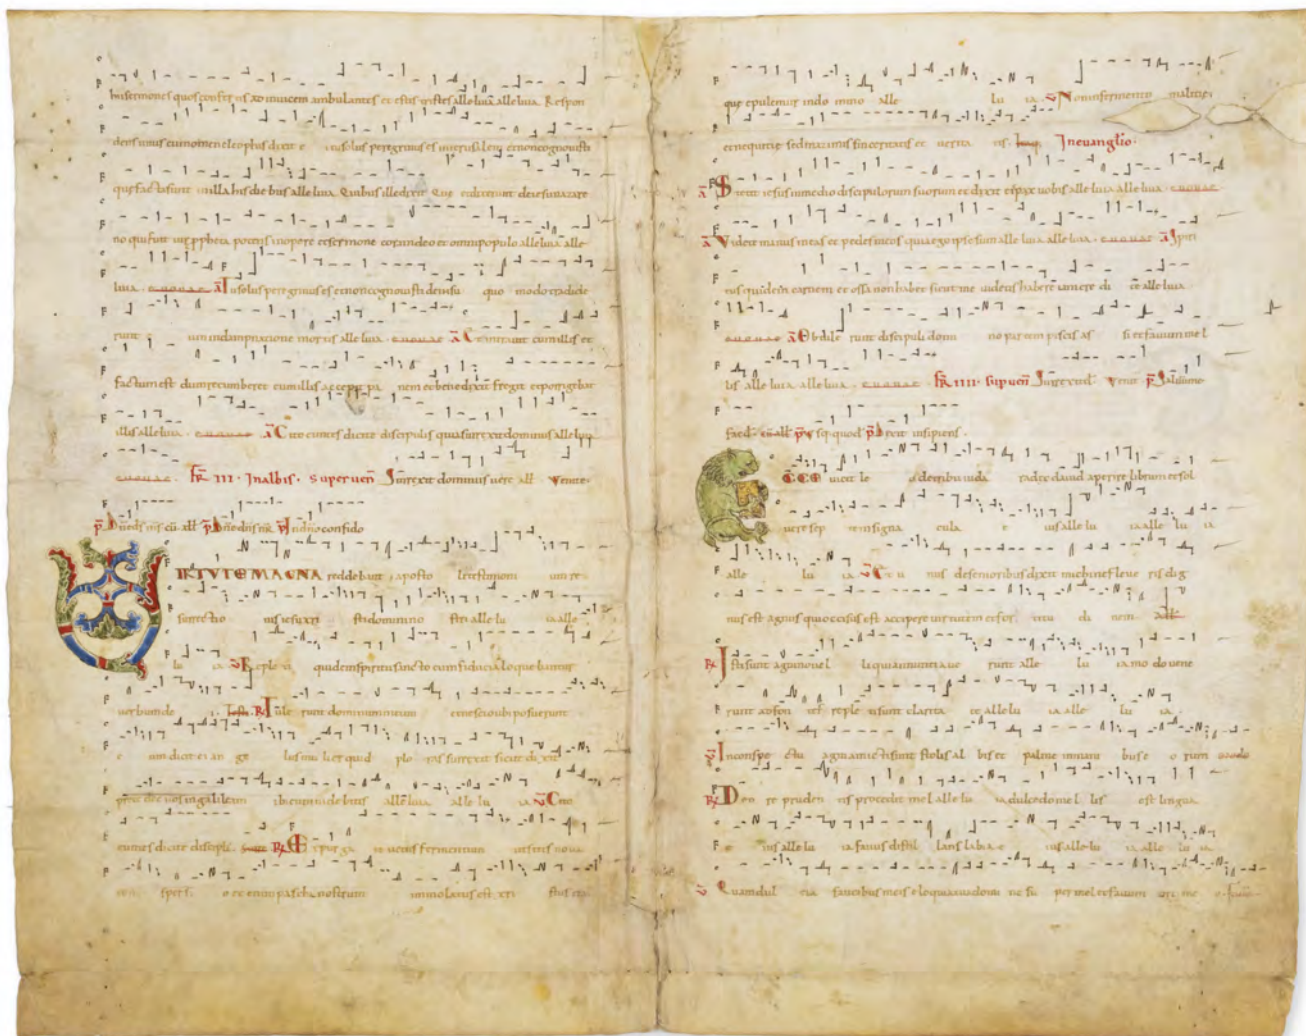 hi sermones quos confertis ad invicem ambulantes et estis tristes alleluia alleluia Respon
dens unus cui nomen cleophas dixit e tu solus peregrinus es in ierusalem et non cognovisti
que facta sunt in illa his diebus alleluia Quibus ille dixit Que et dixerunt de iesu nazare
no qui fuit vir ppheta potens in opere et sermone coram deo et omni populo alleluia alle
luia euouae a Tu solus peregrinus es et non cognovisti de iesu quo modo tradide
runt in damnatione mortis alleluia euouae a Et intravit cum illis et
factum est dum recumberet cum illis accepit pa nem et benedixit fregit et porrigebat
illis alleluia euouae a Cito euntes dicite discipulis quia surrexit dominus alleluia
euouae fr III In albis Super uen Surrexit dominus vere all Venite
p Dne ds ms In dno confido
IRTUTE MAGNA reddebant aposto li testimoni um re
surrectio nis iesu xpi sti domini no stri alle lu ia alle
lu ia v Reple ti quidem spiritu sancto cum fiducia loquebantur
verbum de i R Tule runt dominum meum et nescio ubi posuerunt
e um dicit ei an ge lus mulier quid plo ras surrexit sicut dixit
prece det vos in galileam ibi eum videbitis alleluia alle lu ia v Cito
euntes dicite discipl R Expurga te vetus fermentum ut sitis nova
con spersi o et enim pascha nostrum immolatus est xpi stus ita
que epulemur in do mino alle lu ia v Non in fermento malitie
et nequitie sed in azimis sinceritatis et verita tis In evanglio
a Stetit iesus in medio discipulorum suorum et dixit eis pax vobis alleluia alleluia euouae
a Videte manus meas et pedes meos quia ego ipse sum alleluia alleluia euouae a Spiri
tus quidem carnem et ossa non habet sicut me videtis habere di alleluia
euouae a Obtule runt discipuli domi no partem piscis as si et favum mel
lis alleluia alleluia euouae fr IIII sup uen Surrexit Venit p Salvum me
fac d all p Usq quod p Dixit insipiens
ECCE vicit le o de tribu iuda radix david aperire librum et sol
vere sep tem signa cula e ius alle lu ia alle lu ia
alle lu ia v Et u nus de senioribus dixit michi ne fleve ris dig
nus est agnus qui occisus est accipere virtutem et for titu di nem all
R Isti sunt agni novel li qui annuntiave runt alle lu ia modo vene
runt ad fon tes reple ti sunt clarita te alle lu ia alle lu ia
v In conspe ctu agni amicti sunt stolis al bis et palme in mani bus e o rum modo
R De o re pruden tis procedit mel alle lu ia dulcedo mel lis est lingua
e ius alle lu ia favus distil lans labia e ius alle lu ia alle lu ia
v Quam dul cia faucibus meis eloquia tua domi ne su per mel et favum ori me o favus